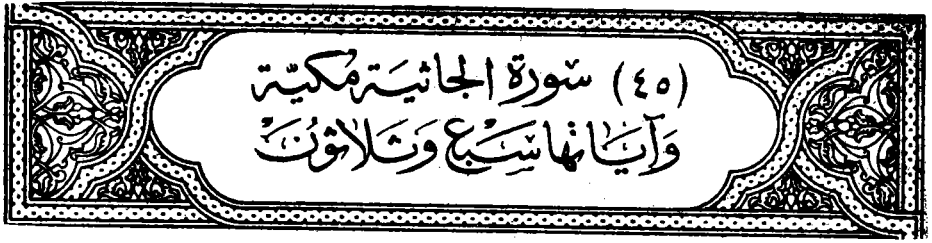 (٤٥) سورة الجاثية مكية
وآياتها سبع وثلاثون